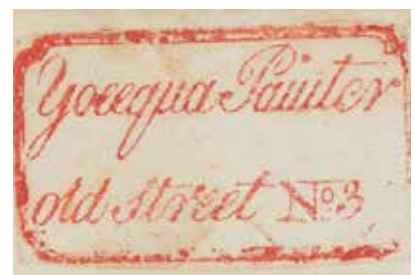 Yoeequa Painter
old street No. 3